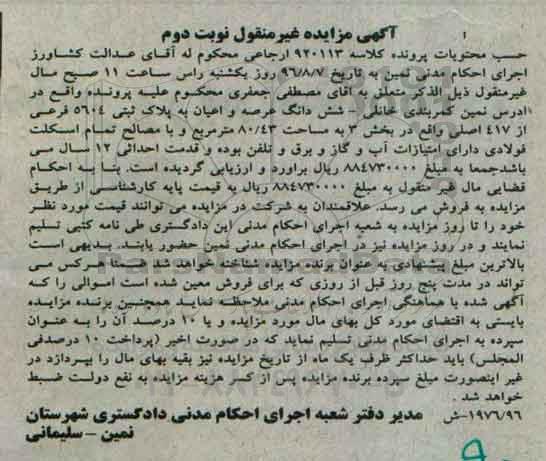 آگهی مزایده غیرمنقول نوبت دوم
حسب محتویات پرونده کلاسه ۹۲۰۱۱۳ ارجاعی محکوم له آقای عدالت کشاورز
اجرای احکام مدنی نمین به تاریخ ۹۶/۸/۷ روز یکشنبه راس ساعت ۱۱ صبح مال
غیرمنقول ذیل الذکر متعلق به آقای مصطفی جعفری محکوم علیه پرونده واقع در
ادرس نمین کمربندی خانلی - شش دانگ عرصه و اعیان به پلاک ثبتی ۵۶۰۴ فرعی
از ۴۱۷ اصلی واقع در بخش ۳ به مساحت ۸۰/۴۳ مترمربع و با مصالح تمام اسکلت
فولادی دارای امتیازات آب و گاز و برق و تلفن بوده و قدمت احداثی ۱۲ سال می
باشدجمعا به مبلغ ۸۸۴۷۳۰۰۰۰ ریال براورد و ارزیابی گردیده است. بنا به احکام
قضایی مال غیر منقول به مبلغ ۸۸۴۷۳۰۰۰۰ ریال به قیمت پایه کارشناسی از طریق
مزایده به فروش می رسد. علاقمندان به شرکت در مزایده می توانند قیمت مورد نظر
خود را تا روز مزایده به شعبه اجرای احکام مدنی این دادگستری طی نامه کتبی تسلیم
نمایند و در روز مزایده نیز در اجرای احکام مدنی نمین حضور یابند. بدیهی است
بالاترین مبلغ پیشنهادی به عنوان برنده مزایده شناخته خواهد شد ضمنا هرکس می
تواند در مدت پنج روز قبل از روزی که برای فروش معین شده است اموالی را که
آگهی شده با هماهنگی اجرای احکام مدنی ملاحظه نماید همچنین برنده مزایده
بایستی به اقتضای مورد کل بهای مال مورد مزایده و یا ۱۰ درصد آن را به عنوان
سپرده به اجرای احکام مدنی تسلیم نماید که در صورت اخیر (پرداخت ۱۰ درصدفی
المجلس) باید حداکثر ظرف یک ماه از تاریخ مزایده نیز بقیه بهای مال را بپردازد در
غیر اینصورت مبلغ سپرده برنده مزایده پس از کسر هزینه مزایده به نفع دولت ضبط
خواهد شد .
۱۹۷۶/۹۶-ش مدیر دفتر شعبه اجرای احکام مدنی دادگستری شهرستان
نمین - سلیمانی